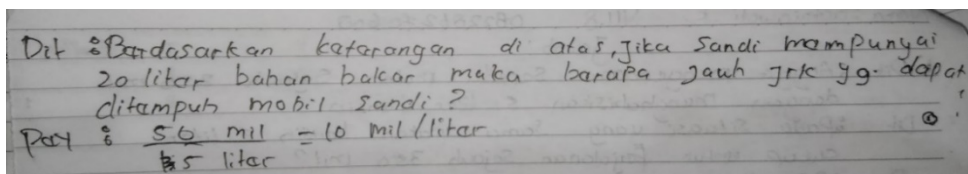 Dit : Bardasarkan katarangan di atas, Jika Sandi mampunyai
20 litar bahan bakar maka barapa jauh jrk yg. dapat
ditampuh mobil Sandi?
Pay : 50 mil = 10 mil/litar
5 litar